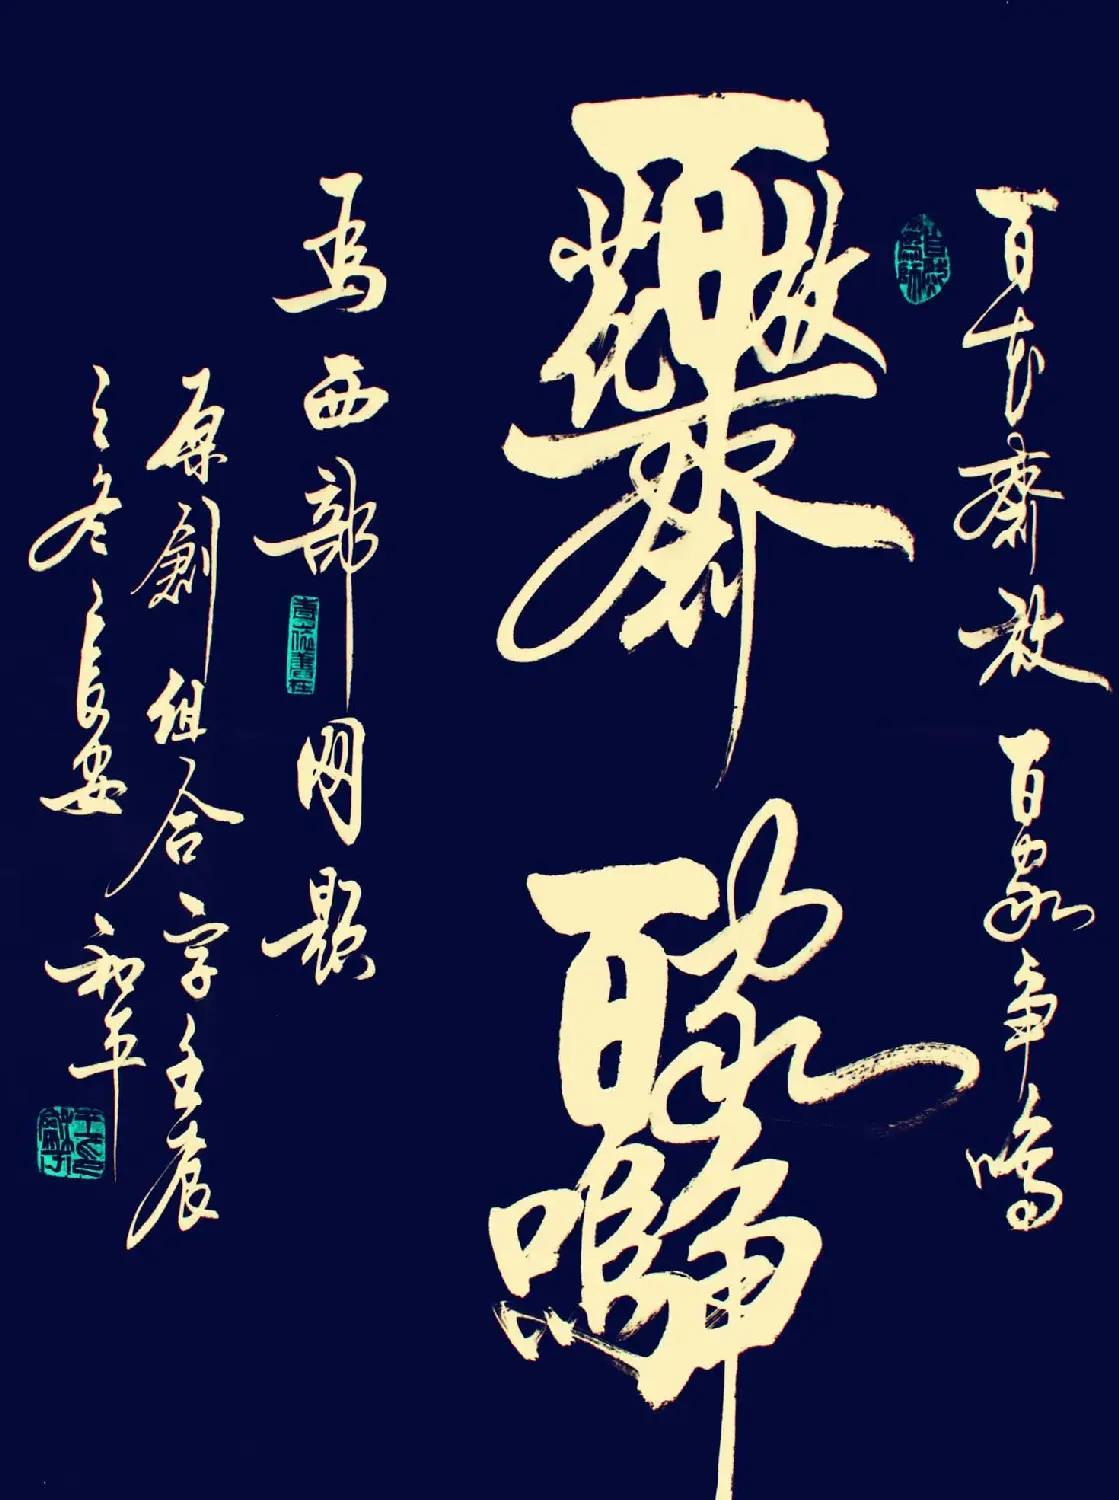 百花齊放 百家争鳴
為西部网題
原創組合字壬辰
之冬長安和平